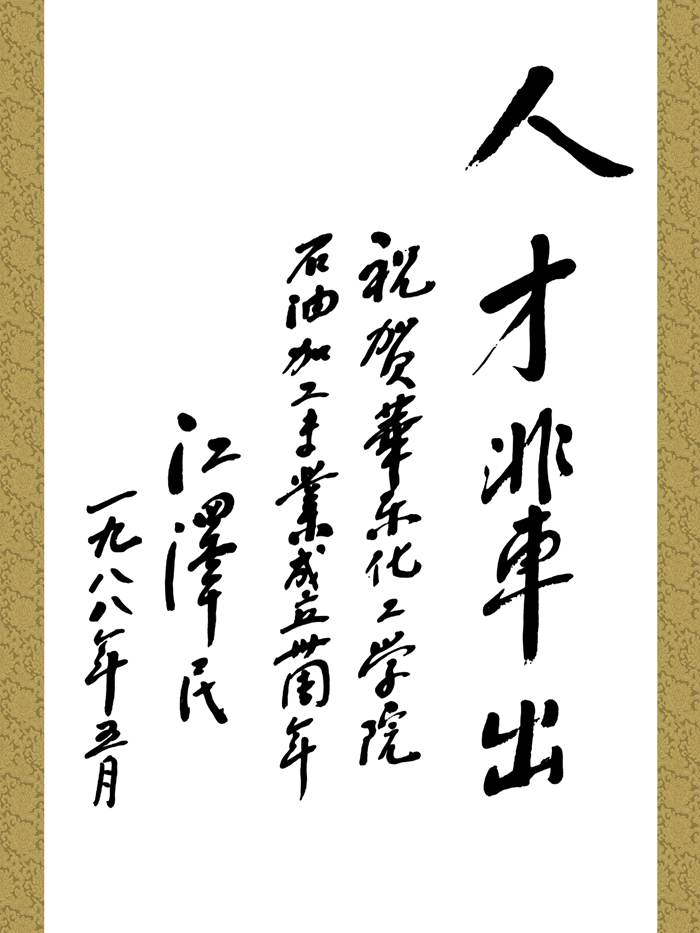 人才輩出
祝賀華东化工学院
石油加工专業成立卅周年
江澤民
一九八八年五月